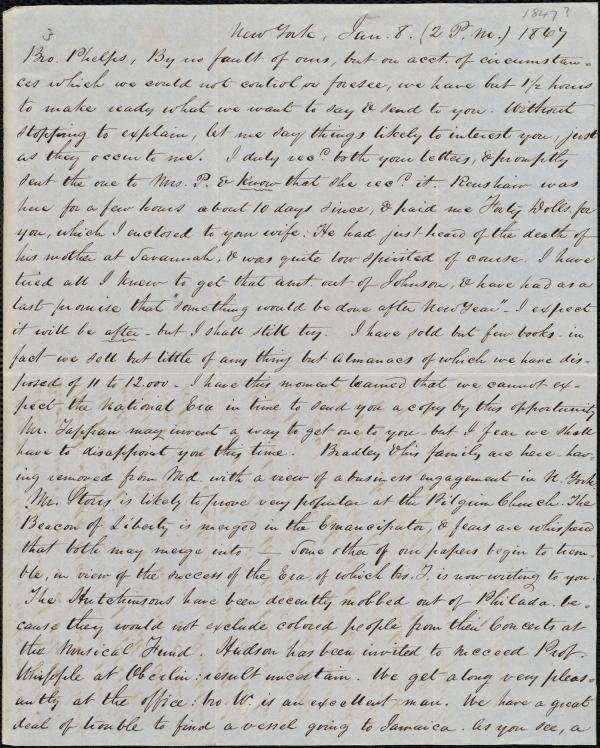 1847?
3
New York, Jan. 8. (2 P.M.) 1847
Bro. Phelps, By no fault of ours, but on acct. of circumstan-
ces which we could not control or foresee, we have but 1 1/2 hours
to make ready what we want to say & send to you. Without
stopping to explain, let me say things likely to interest you, just
as they occur to me. I duly recd both your letters, & promptly
sent the one to Mrs. P. & know that she recd it. Renshaw was
here for a few hours about 10 days since, & paid me Forty Dolls. for
you, which I enclosed to your wife: He had just heard of the death of
his mother at Savannah, & was quite low spirited of course. I have
tried all I knew to get that amt. out of Johnson, & have had as a
last promise that "something would be done after New Year" - I expect
it will be after - but I shall still try. I have sold but few books - in
fact we sell but little of any thing but Almanacs of which we have dis-
posed of 11 to 12.000 - I have this moment learned that we cannot ex-
pect the National Era in time to send you a copy by this opportunity
Mr. Tappan may invent a way to get one to you - but I fear we shall
have to disappoint you this time. Bradley & his family are here hav-
ing removed from Md. with a view of a business engagement in N. York.
Mr. Storrs is likely to prove very popular at the Pilgrim Church. The
Beacon of Liberty is merged in the Emancipator, & fears are whispered
that both may merge into — Some other of our papers begin to trem-
ble, in view of the success of the Era, of which bro. T. is now writing to you.
The Hutchinsons have been decently mobbed out of Philada. be-
cause they would not exclude colored people from their Concerts at
the Musical Fund. Hudson has been invited to succeed Prof.
Whipple at Oberlin: result uncertain. We get along very pleas-
antly at the office: bro. W. is an excellent man. We have a great
deal of trouble to find a vessel going to Jamaica. As you see, a